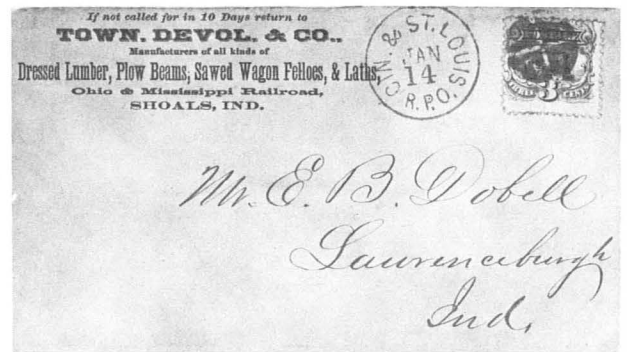 If not called for in 10 Days return to
TOWN. DEVOL. & CO.,
Manufacturers of all kinds of
Dressed Lumber, Plow Beams, Sawed Wagon Felloes, & Laths,
Ohio & Mississippi Railroad,
SHOALS, IND.
CIN. & ST. LOUIS
JAN
14
R.P.O.
3
Mr. E. B. Dobell
Lawrenceburgh
Ind.